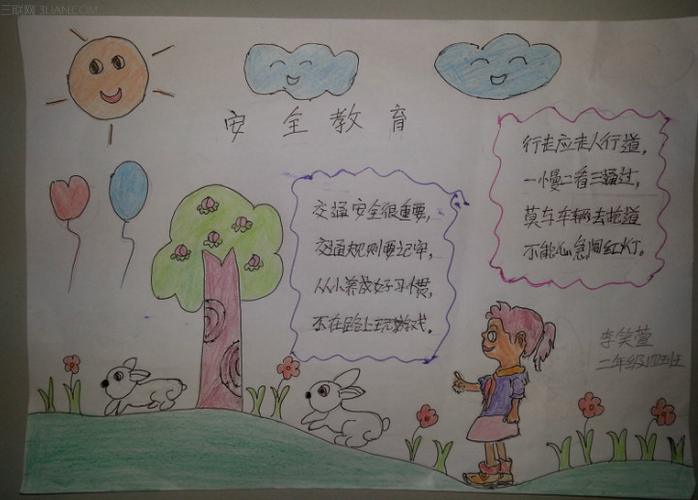 三联网 3LIAN.COM
安全教育
交通安全很重要,
交通规则要记牢,
从小养成好习惯,
不在路上玩游戏。
行走应走人行道,
一慢二看三通过,
莫与车辆去抢道
不能心急闯红灯。
李笑萱
二年级四班